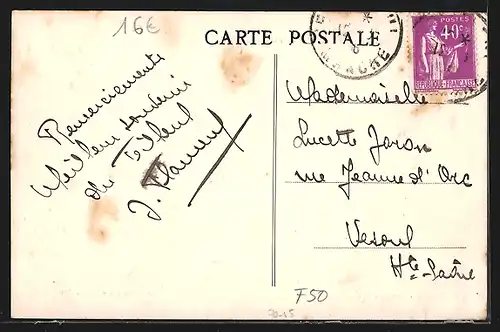 16€
CARTE POSTALE
MANCHE
POSTES
40c
REPUBLIQUE FRANÇAISE
Remerciements
Meilleur souvenir
du Tilleul
J.
Mademoiselle
Lucette Jaron
rue Jeanne d'Arc
Vesoul
Hte Saône
F50